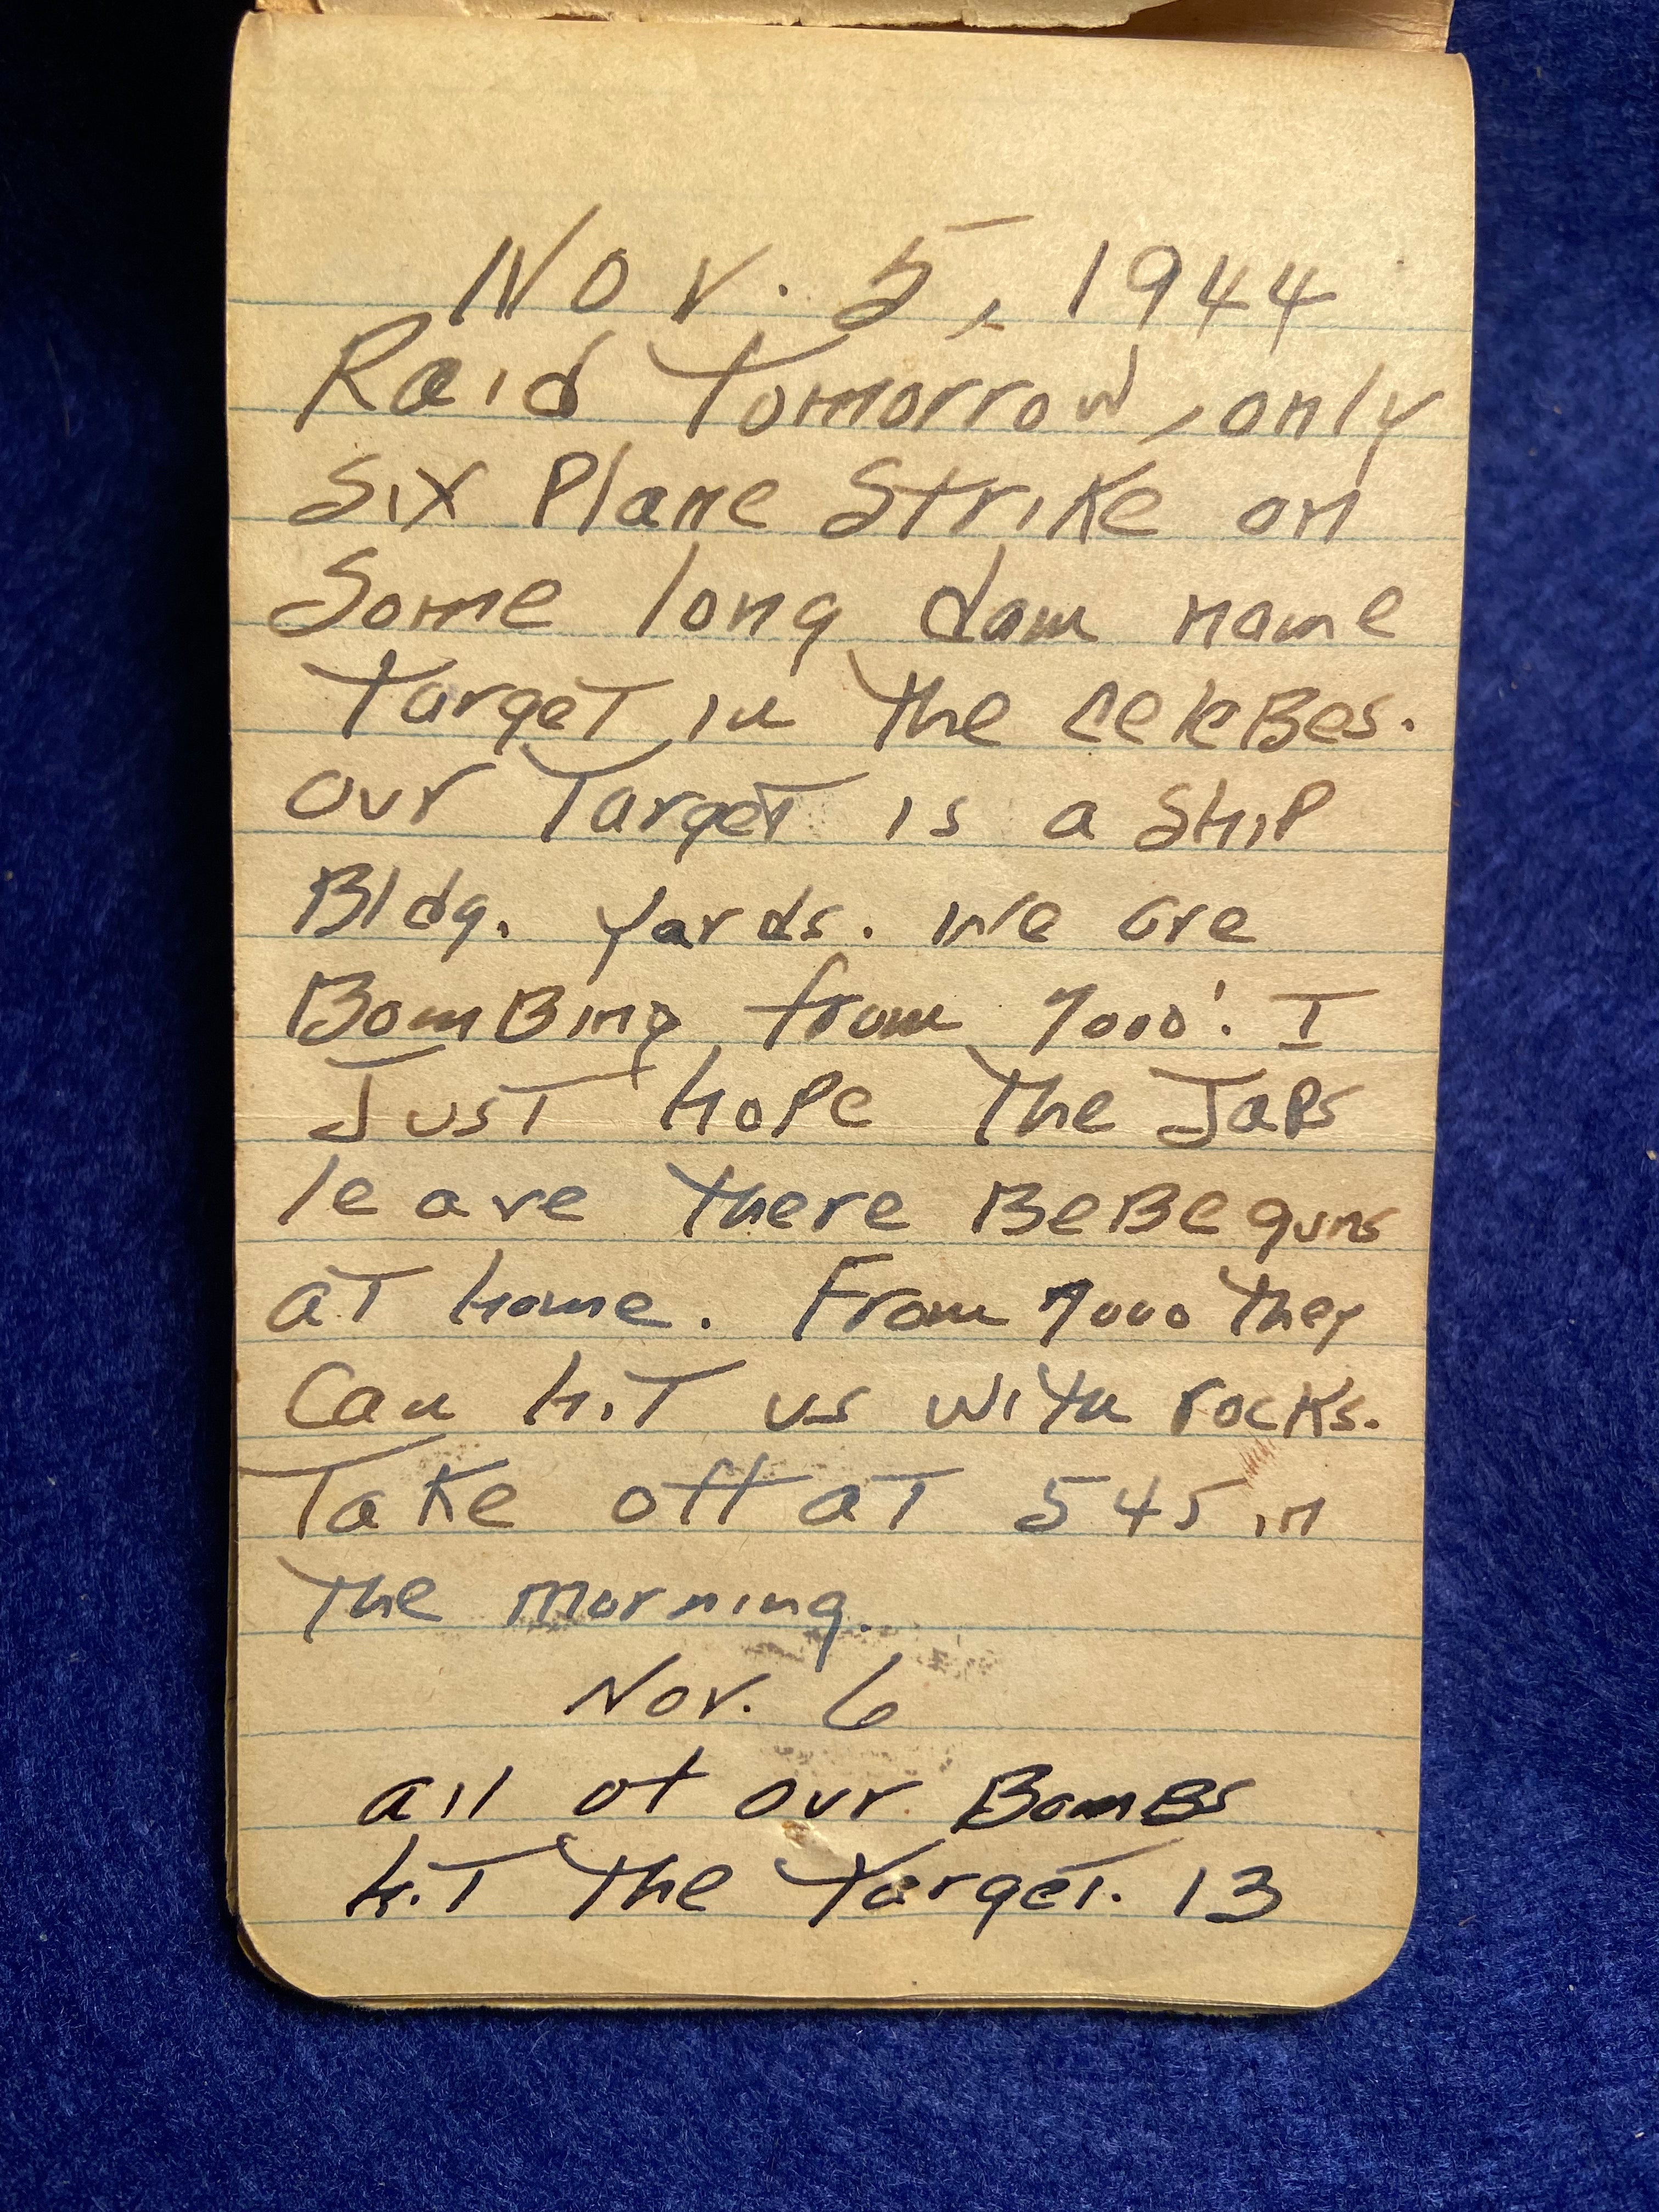 Nov. 5, 1944
Raid Tomorrow, only
six Plane Strike on
Some long dam name
Target in the CeleBes.
our Target is a Ship
Bldg. yards. We are
BomBing from 7000'. I
Just hope the Japs
leave there BeBe guns
at home. From 7000 they
Can hit us with rocks.
Take off at 545 in
the morning.
Nov. 6
all of our BomBs
hit the Target. 13